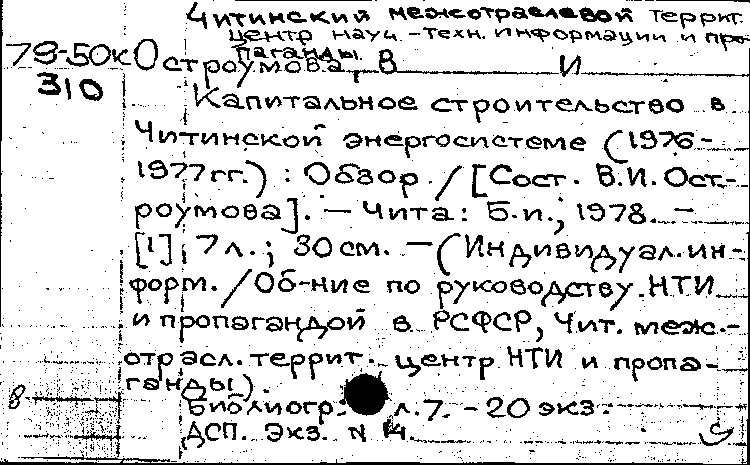 Читинский межотраслевой террит.
центр науч.-техн. информации и про-
паганды.
79-50к Остроумова, В И
310
Капитальное строительство в
Читинской энергосистеме (1976-
1977гг.) : Обзор / [Сост. В.И. Ост-
роумова]. — Чита: Б.и., 1978. —
[1], 7 л.; 30 см. — (Индивидуал. ин-
форм. / Об-ние по руководству НТИ
и пропагандой в РСФСР, Чит. меж-
отрасл. террит. центр НТИ и пропа-
ганды).
8
Библиогр. л. 7. - 20 экз.
ДСП. Экз. N 14.